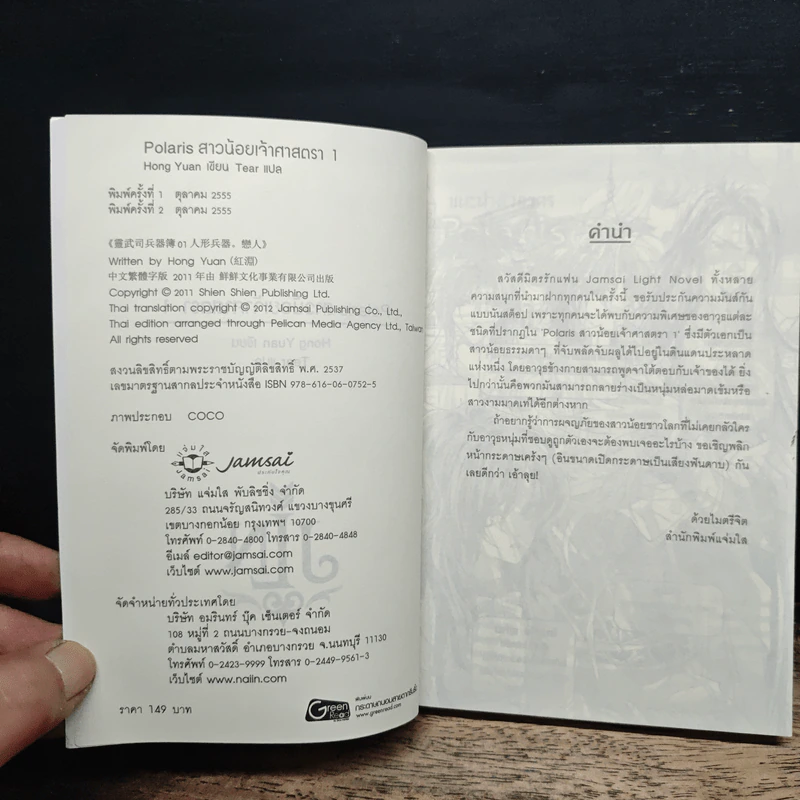 Polaris สาวน้อยเจ้าศาสตรา 1
Hong Yuan เขียน Tear แปล
พิมพ์ครั้งที่ 1 ตุลาคม 2555
พิมพ์ครั้งที่ 2 ตุลาคม 2555
《靈武司兵器簿01人形兵器。戀人》
Written by Hong Yuan (紅淵)
中文繁體字版 2011年由 鮮鮮文化事業有限公司出版
Copyright © 2011 Shien Shien Publishing Ltd.
Thai translation copyright © 2012 Jamsai Publishing Co., Ltd.,
Thai edition arranged through Pelican Media Agency Ltd., Taiwan
All rights reserved
สงวนลิขสิทธิ์ตามพระราชบัญญัติลิขสิทธิ์ พ.ศ. 2537
เลขมาตรฐานสากลประจำหนังสือ ISBN 978-616-06-0752-5
ภาพประกอบ COCO
จัดพิมพ์โดย
แจ่มใส
Jamsai
Jamsai
บริษัท แจ่มใส พับลิชชิ่ง จำกัด
285/33 ถนนจรัญสนิทวงศ์ แขวงบางขุนศรี
เขตบางกอกน้อย กรุงเทพฯ 10700
โทรศัพท์ 0-2840-4800 โทรสาร 0-2840-4848
อีเมล์ editor@jamsai.com
เว็บไซต์ www.jamsai.com
จัดจำหน่ายทั่วประเทศโดย
บริษัท อมรินทร์ บุ๊ค เซ็นเตอร์ จำกัด
108 หมู่ที่ 2 ถนนบางกรวย-จงถนอม
ตำบลมหาสวัสดิ์ อำเภอบางกรวย จ.นนทบุรี 11130
โทรศัพท์ 0-2423-9999 โทรสาร 0-2449-9561-3
เว็บไซต์ www.naiin.com
ราคา 149 บาท
Green Read
พิมพ์บน
กระดาษถนอมสายตากรีนรี้ด
www.greenread.com
คำนำ
สวัสดีมิตรรักแฟน Jamsai Light Novel ทั้งหลาย
ความสนุกที่นำมาฝากทุกคนในครั้งนี้ ขอรับประกันความมันส์กัน
แบบนันสต็อป เพราะทุกคนจะได้พบกับความพิเศษของอาวุธแต่ละ
ชนิดที่ปรากฏใน 'Polaris สาวน้อยเจ้าศาสตรา 1' ซึ่งมีตัวเอกเป็น
สาวน้อยธรรมดาๆ ที่จับพลัดจับผลูได้ไปอยู่ในดินแดนประหลาด
แห่งหนึ่ง โดยอาวุธข้างกายสามารถพูดจาโต้ตอบกับเจ้าของได้ ยิ่ง
ไปกว่านั้นคือพวกมันสามารถกลายร่างเป็นหนุ่มหล่อมาดเข้มหรือ
สาวงามมาดเท่ได้อีกต่างหาก
ถ้าอยากรู้ว่าการผจญภัยของสาวน้อยชาวโลกที่ไม่เคยกลัวใคร
กับอาวุธหนุ่มที่ชอบดูถูกตัวเองจะต้องพบเจออะไรบ้าง ขอเชิญพลิก
หน้ากระดาษเคร้งๆ (อินขนาดเปิดกระดาษเป็นเสียงฟันดาบ) กัน
เลยดีกว่า เอ้าลุย!
ด้วยไมตรีจิต
สำนักพิมพ์แจ่มใส